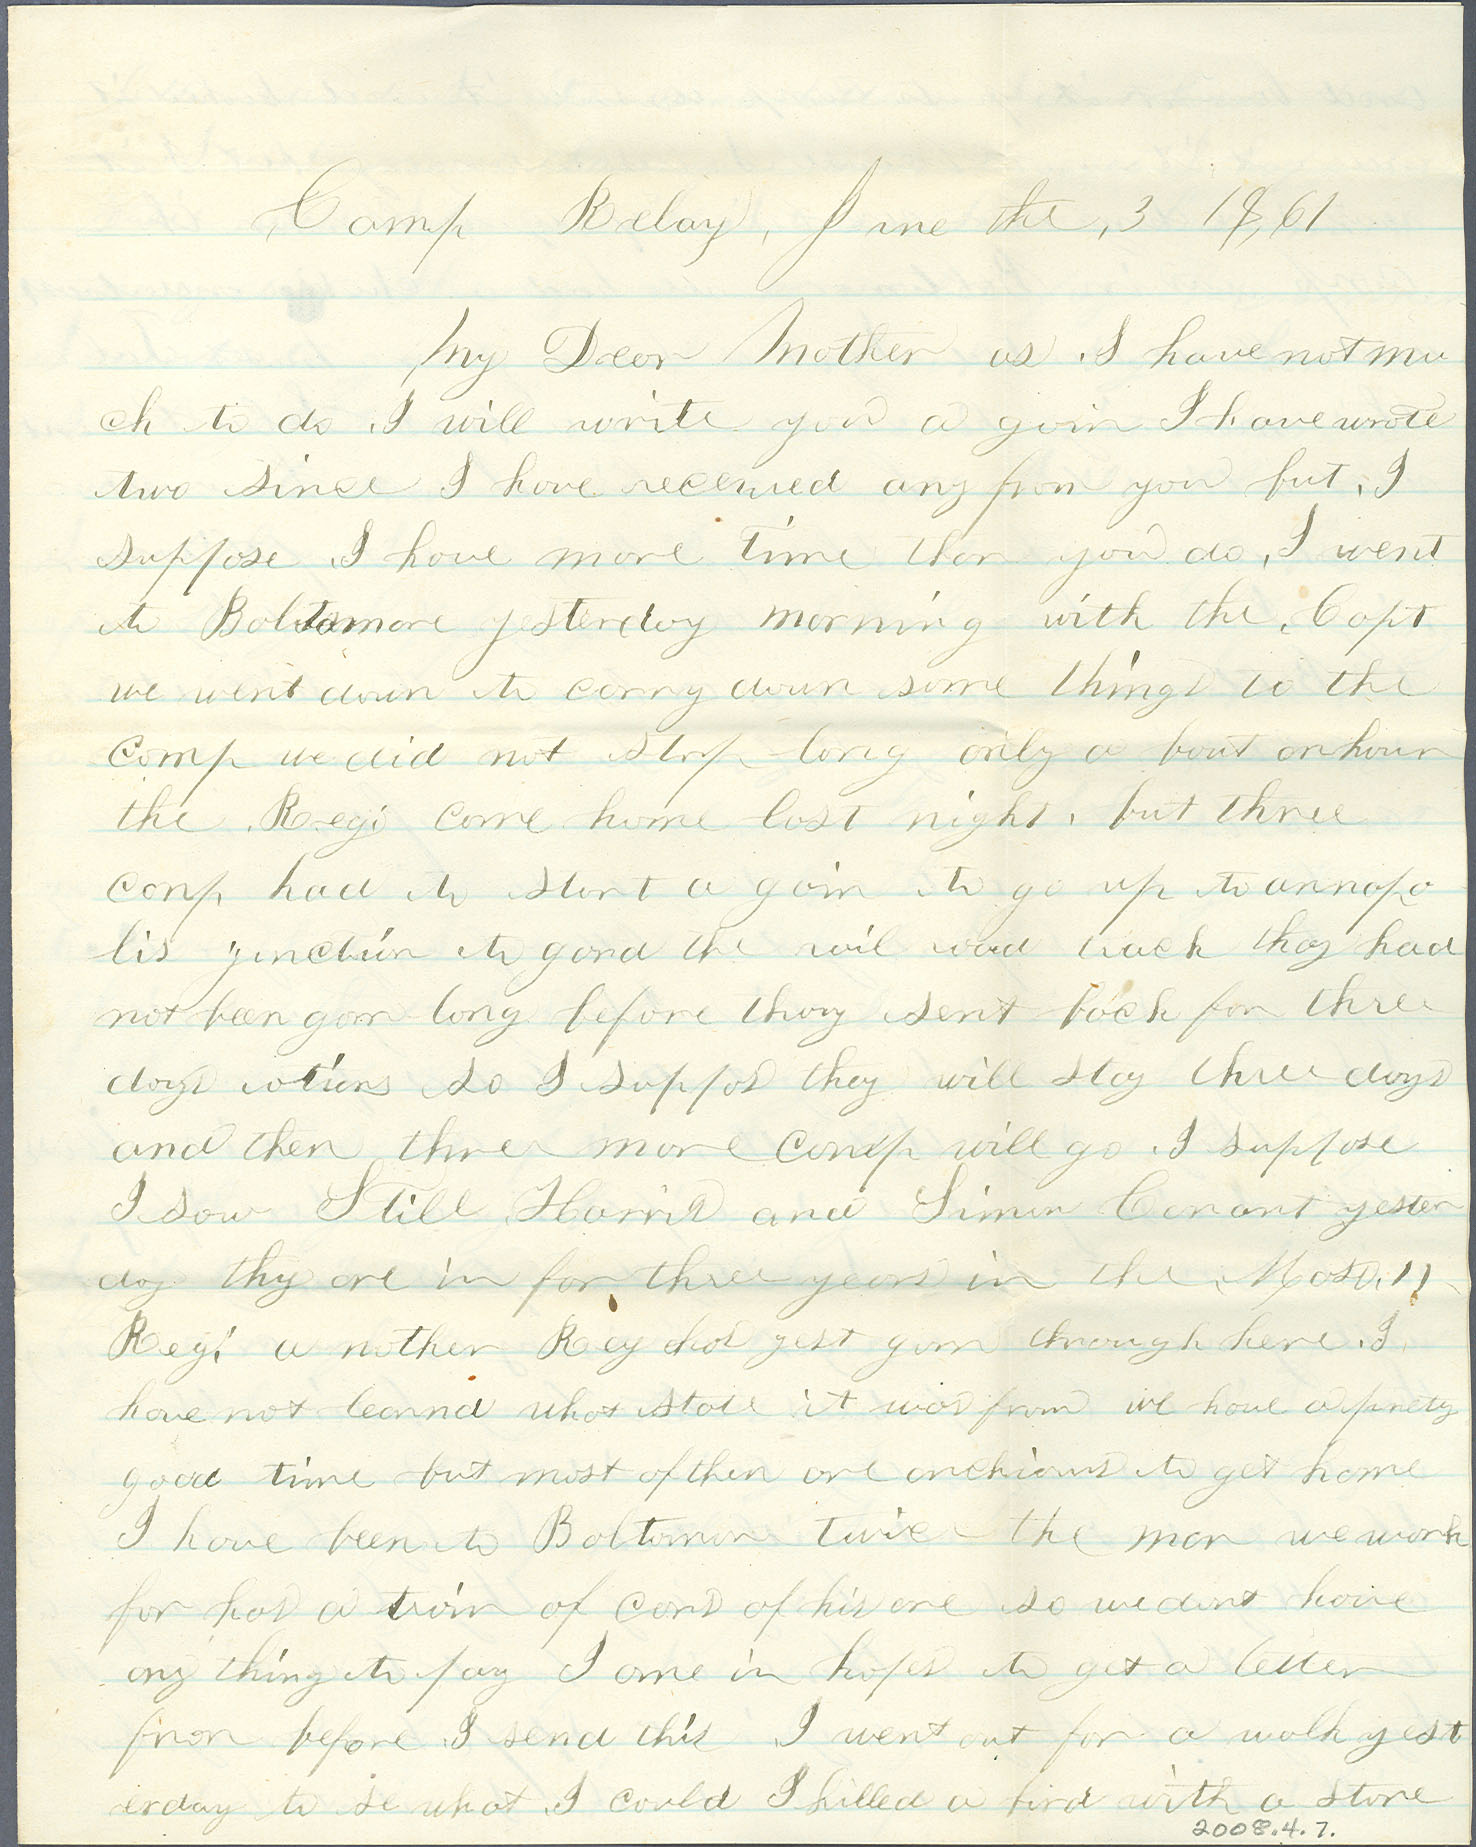 Camp Relay, June the, 3 18,61
My Dear Mother as I have not mu
ch to do I will write you a gain I have wrote
two since I have received any from you but, I
suppose I have more time than you do, I went
to Baltamore yesterday morning with the, Capt
we went down to carry down some things to the
camp we did not stop long only a bout an hour
the Regi come home last night, but three
comp had to start a gain to go up to annapo
lis junction to gard the rail road track thay had
not been gorn long before thay sent back for three
days rations so I suppos they will stay three days
and then three more comp will go I suppose
I saw Still Harris and Simon Conant yester
day thy are in for three years in the Mass, 11
Regi a nother Reg has yest gorn through here I
have not learnd what state it was from we have a prety
good time but most of then are anchious to get home
I have been to Baltimor twice the man we work
for has a train of cars of his one so we dont have
any thing to pay I ame in hopes to get a letter
fron before I send this I went out for a walk yest
erday to se what I could I killed a bird with a stone
2008.4.7.